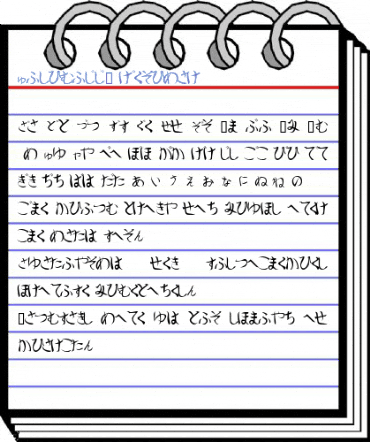 ゅふしひむふしじ▯ げくぞひめさけ
ささ どど づつ すす ぐく せせ ぞそ ▯ま ぶふ ▯み ▯む
め ゅゆ ャや ぺへ ほほ がか けけ じし ごこ ぴひ てて
ぎき ぢち ばは だた あ い う え お な に ぬ ね の
ごまく かひふつむ どけへきや せへち みひゆほし へてくけ
こまく めきたは すへぞん
さゆきたふやそのは せくき すふしつへこまくかひくし
ほけへてふすく みひむくどへちくしん
▯さつむすさきし めへてく ゆは とふぞ しほまふやち へせ
かひさけこたん